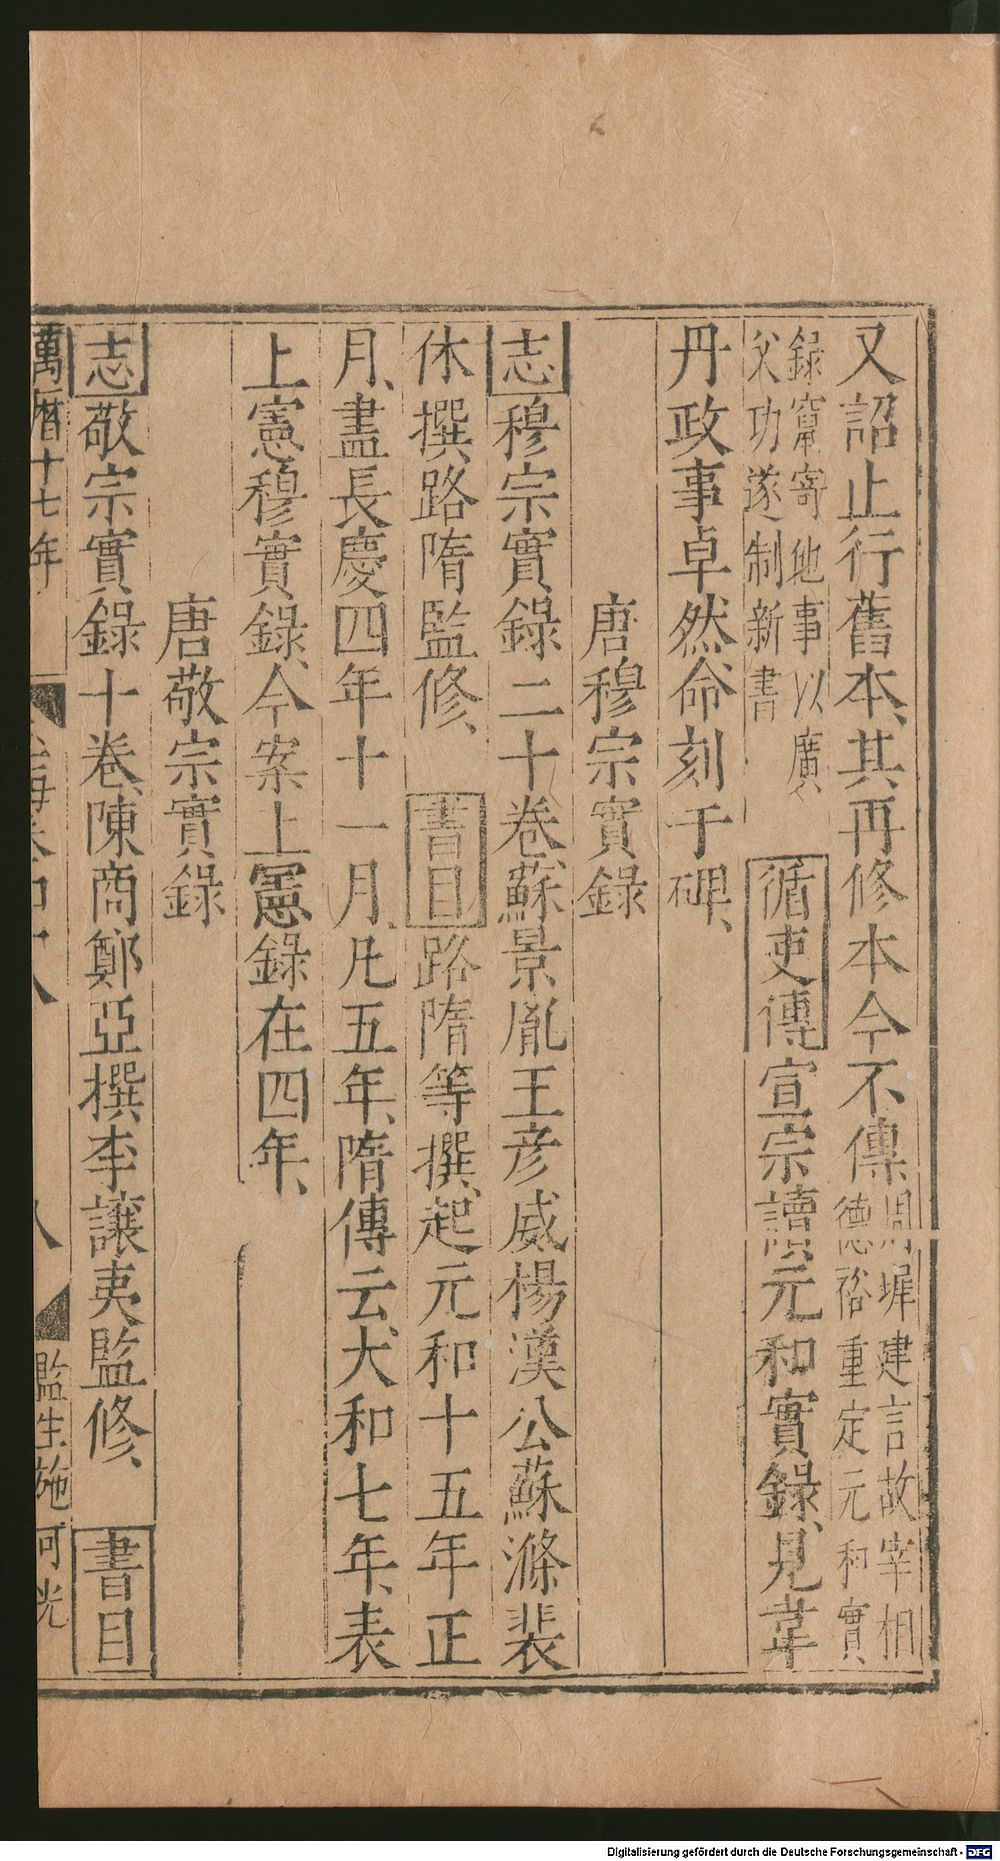 又詔止行舊本、其再修本今不傳周墀建言故宰相德裕重定元和實
錄竄寄他事以廣父功遂制新書 循吏傳宣宗讀元和實錄、見韋
丹政事卓然、命刻于碑、
唐穆宗實錄
志穆宗實錄二十卷、蘇景胤王彦威楊漢公蘇滌裴
休撰路隋監修、書目路隋等撰、起元和十五年正
月、盡長慶四年十一月、凡五年、隋傳云、大和七年、表
上憲穆實錄、今案上憲錄在四年、
唐敬宗實錄
志敬宗實錄十卷、陳商鄭亞撰李讓夷監修、書目
萬曆十七年 八 監生施
Digitalisierung gefördert durch die Deutsche Forschungsgemeinschaft - DFG